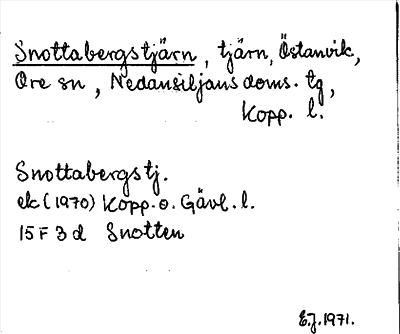 Snottabergstjärn, tjärn, Östanvik,
Ore sn, Nedansiljans doms. tg,
Kopp. l.
Snottabergstj.
ek (1970) Kopp. o. Gävl. l.
15 F 3 d Snotten
E.J. 1971.